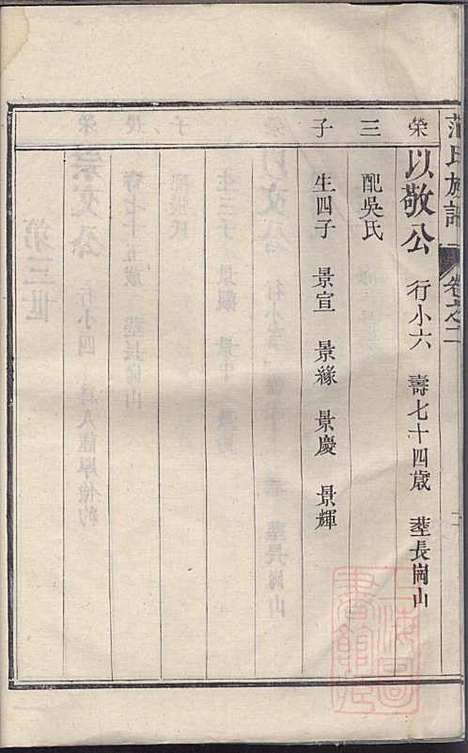 氏族譜 卷之二
榮三子
以敬公 行小六 壽七十四歲 塟長崗山
配吳氏
生四子 景宣 景緣 景慶 景輝